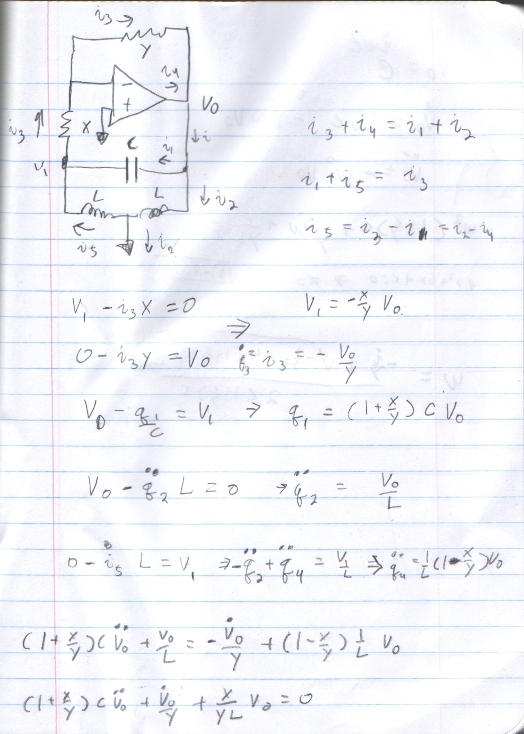 i₃ →
Y
−
+
i₄
V₀
i₃
X
C
i₁
↓ i
V₁
i₃ + i₄ = i₁ + i₂
i₁ + i₅ = i₃
L
L
↓ i₂
i₅
↓ i₂
i₅ = i₃ - i₁ = i₂ - i₄
V₁ - i₃X = 0 ⇒ V₁ = -x/y V₀
0 - i₃Y = V₀ q̇₃ = i₃ = - V₀/Y
V₀ - q₁/C = V₁ → q₁ = (1 + x/y) C V₀
V₀ - q̈₂ L = 0 → q̈₂ = V₀/L
0 - i̇₅ L = V₁ ⇒ -q̈₂ + q̈₄ = V₁/L ⇒ q̈₄ = 1/L (1 - x/y) V₀
(1 + x/y) C V̈₀ + V₀/L = - V̇₀/Y + (1 - x/y) 1/L V₀
(1 + x/y) C V̈₀ + V̇₀/Y + x/(YL) V₀ = 0